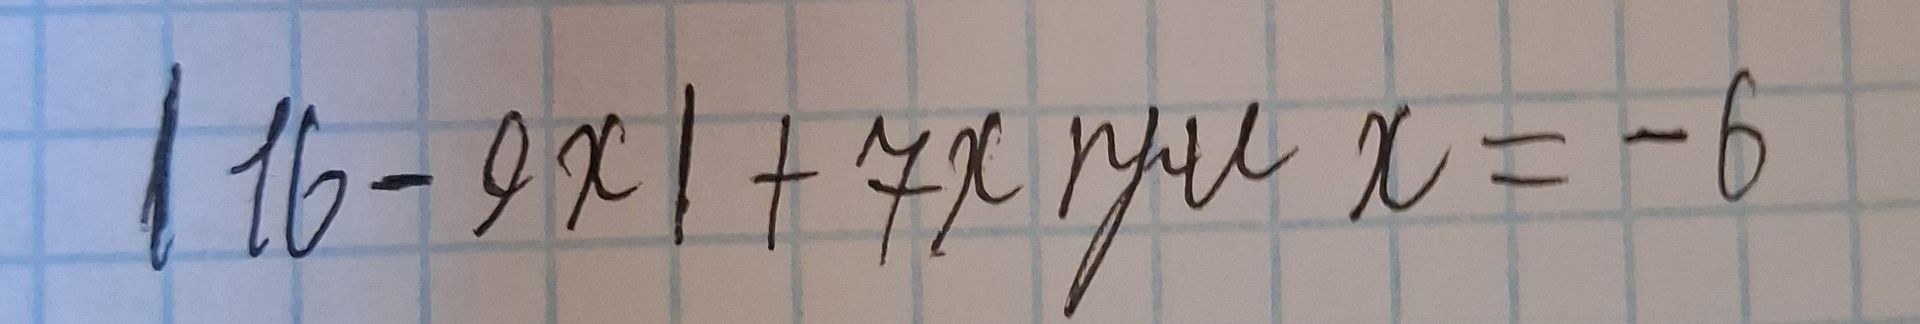 |16-9x|+7x при x=-6